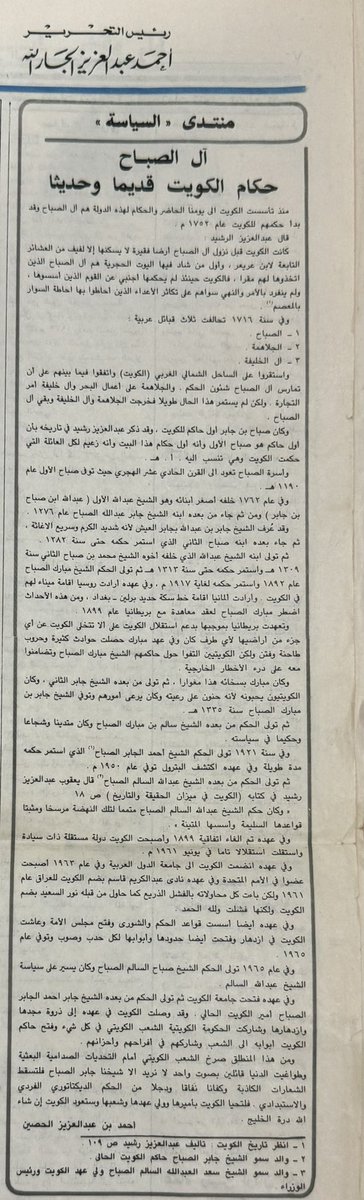 رئيس التحرير
أحمد عبدالعزيز الجارالله
منتدى « السياسة »
آل الصباح
حكام الكويت قديما وحديثا
منذ تأسست الكويت الى يومنا الحاضر والحكام لهذه الدولة هم آل الصباح وقد
بدأ حكمهم للكويت عام ١٧٥٢ م .
قال عبدالعزيز الرشيد
كانت الكويت قبل نزول آل الصباح أرضا فقيرة لا يسكنها إلا لفيف من العشائر
التابعة لابن عريعر ، وأول من شاد فيها البيوت الحجرية هم آل الصباح الذين
اتخذوها لهم مقرا ، فالكويت حينئذ لم يحكمها أجنبي عن القوم الذين أسسوها ،
ولم ينفرد بالأمر والنهي سواهم على تكاثر الأعداء الذين أحاطوا بها احاطة السوار
بالمعصم (١) .
وفي سنة ١٧١٦ تحالفت ثلاث قبائل عربية :
١ - الصباح
٢ - الجلاهمة .
٣ - آل الخليفة .
واستقروا على الساحل الشمالي الغربي (الكويت) واتفقوا فيما بينهم على أن
تمارس آل الصباح شئون الحكم . والجلاهمة على أعمال البحر وآل خليفة أمر
التجارة . ولكن لم يستمر هذا الحال طويلا فخرجت الجلاهمة وآل الخليفة وبقي آل
الصباح .
وكان صباح بن جابر أول حاكم للكويت ، وقد ذكر عبدالعزيز رشيد في تاريخه بأن
أول حاكم هو صباح الأول وأنه أول حكام هذا البيت وأنه زعيم لكل العائلة التي
حكمت الكويت وهي تنسب اليه . أ . هـ .
وأسرة الصباح تعود الى القرن الحادي عشر الهجري حيث توفى صباح الأول عام
١١٩٠ هـ .
وفي عام ١٧٦٢ خلفه أصغر أبنائه وهو الشيخ عبدالله الأول ( عبدالله ابن صباح
بن جابر ) ومن ثم جاء من بعده ابنه الشيخ جابر العبدالله الصباح عام ١٢٧٦ .
وقد عُرف الشيخ جابر بن عبدالله بجابر العيش لأنه شديد الكرم وسريع الاغاثة ،
ثم جاء بعده ابنه صباح الثاني الذي استمر حكمه حتى سنة ١٢٨٢ .
ثم تولى ابنه الشيخ عبدالله الذي خلفه أخوه الشيخ محمد بن صباح الثاني سنة
١٣٠٩ هـ واستمر حكمه حتى سنة ١٣١٣ هـ ثم تولى الحكم الشيخ مبارك الصباح
عام ١٨٩٢ واستمر حكمه لغاية ١٩١٧ م . وفي عهده أرادت روسيا اقامة ميناء لهم
في الكويت . وأرادت ألمانيا اقامة خط سكة حديد برلين - بغداد . ومن هذه الأحداث
اضطر مبارك الصباح لعقد معاهدة مع بريطانيا عام ١٨٩٩
وتعهدت بريطانيا بموجبها بدعم استقلال الكويت على ألا تتخلى الكويت عن أي
جزء من أراضيها لأي طرف كان وفي عهد مبارك حصلت حوادث كثيرة وحروب
طاحنة وفتن ولكن الكويتيين التفوا حول حاكمهم الشيخ مبارك الصباح وتضامنوا
معه على درء الأخطار الخارجية .
وكان مبارك بسخائه هذا مغوارا . ثم تولى من بعده الشيخ جابر الثاني ، وكان
الكويتيون يحبونه لأنه حنون على رعيته وكان يرعى أمورهم وتوفي الشيخ جابر بن
مبارك الصباح سنة ١٣٣٥ هـ .
ثم تولى الحكم من بعده الشيخ سالم بن مبارك الصباح وكان متدينا وشجاعا
وحكيما في سياسته .
وفي سنة ١٩٢١ تولى الحكم الشيخ أحمد الجابر الصباح (٢) الذي استمر حكمه
مدة طويلة وفي عهده اكتشف البترول توفي عام ١٩٥٠ م .
ثم تولى الحكم من بعده الشيخ عبدالله السالم الصباح (٣) قال يعقوب عبدالعزيز
رشيد في كتابه (الكويت في ميزان الحقيقة والتاريخ ) ص ١٨
« وكان حكم الشيخ عبدالله السالم الصباح متمما لتلك النهضة مرسخا ومثبتا
قواعدها السليمة وأسسها المتينة »
وفي عهده تم الغاء اتفاقية ١٨٩٩ وأصبحت الكويت دولة مستقلة ذات سيادة
واستقلت استقلالا تاما في يونيو ١٩٦١ م .
وفي عهده انضمت الكويت الى جامعة الدول العربية وفي عام ١٩٦٣ اصبحت
عضوا في الأمم المتحدة وفي عهده نادى عبدالكريم قاسم بضم الكويت للعراق عام
١٩٦١ ولكن باءت كل محاولاته بالفشل الذريع كما حاول من قبله نور السعيد بضم
الكويت ولكنها فشلت ولله الحمد .
وفي عهده أيضا أسس قواعد الحكم والشورى وفتح مجلس الأمة وعاشت
الكويت في ازدهار وفتحت أيضا حدودها وأبوابها لكل حدب وصوب وتوفي عام
١٩٦٥ .
وفي عام ١٩٦٥ تولى الحكم الشيخ صباح السالم الصباح وكان يسير على سياسة
الشيخ عبدالله السالم .
وفي عهده فتحت جامعة الكويت ثم تولى الحكم من بعده الشيخ جابر أحمد الجابر
الصباح أمير الكويت الحالي . وقد وصلت الكويت في عهده إلى ذروة مجدها
وازدهارها وشاركت الحكومة الكويتية الشعب الكويتي في كل شيء وفتح حاكم
الكويت أبوابه الى الشعب وشاركهم في أفراحهم وأحزانهم .
ومن هذا المنطلق صرخ الشعب الكويتي أمام التحديات الصدامية البعثية
وطواغيت الدنيا قائلين بصوت واحد لا نريد الا شيخنا جابر الصباح فلتسقط
الشعارات الكاذبة وكفانا نفاقا ودجلا من الحكم الديكتاتوري الفردي
والاستبدادي . فلتحيا الكويت بأميرها وولي عهدها وشعبها وستعود الكويت إن شاء
الله درة الخليج .
أحمد بن عبدالعزيز الحصين
١ - انظر تاريخ الكويت : تأليف عبدالعزيز رشيد ص ١٠٩
٢ - والد سمو الشيخ جابر الصباح حاكم الكويت الحالي .
٣ - والد سمو الشيخ سعد العبدالله السالم الصباح ولي عهد الكويت ورئيس
الوزراء